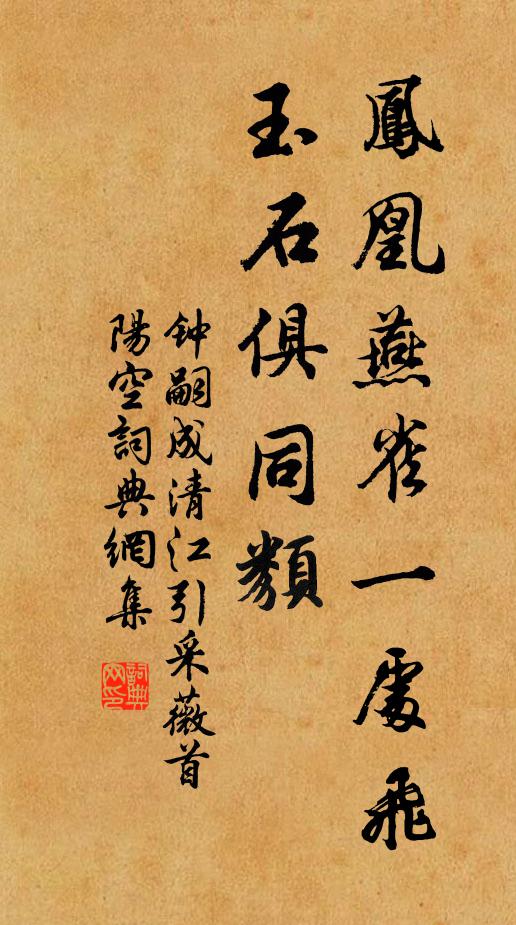 鳳凰燕雀一處飛
玉石俱同類
钟嗣成清江引采薇首
陽空詞典網集
詞典
网印